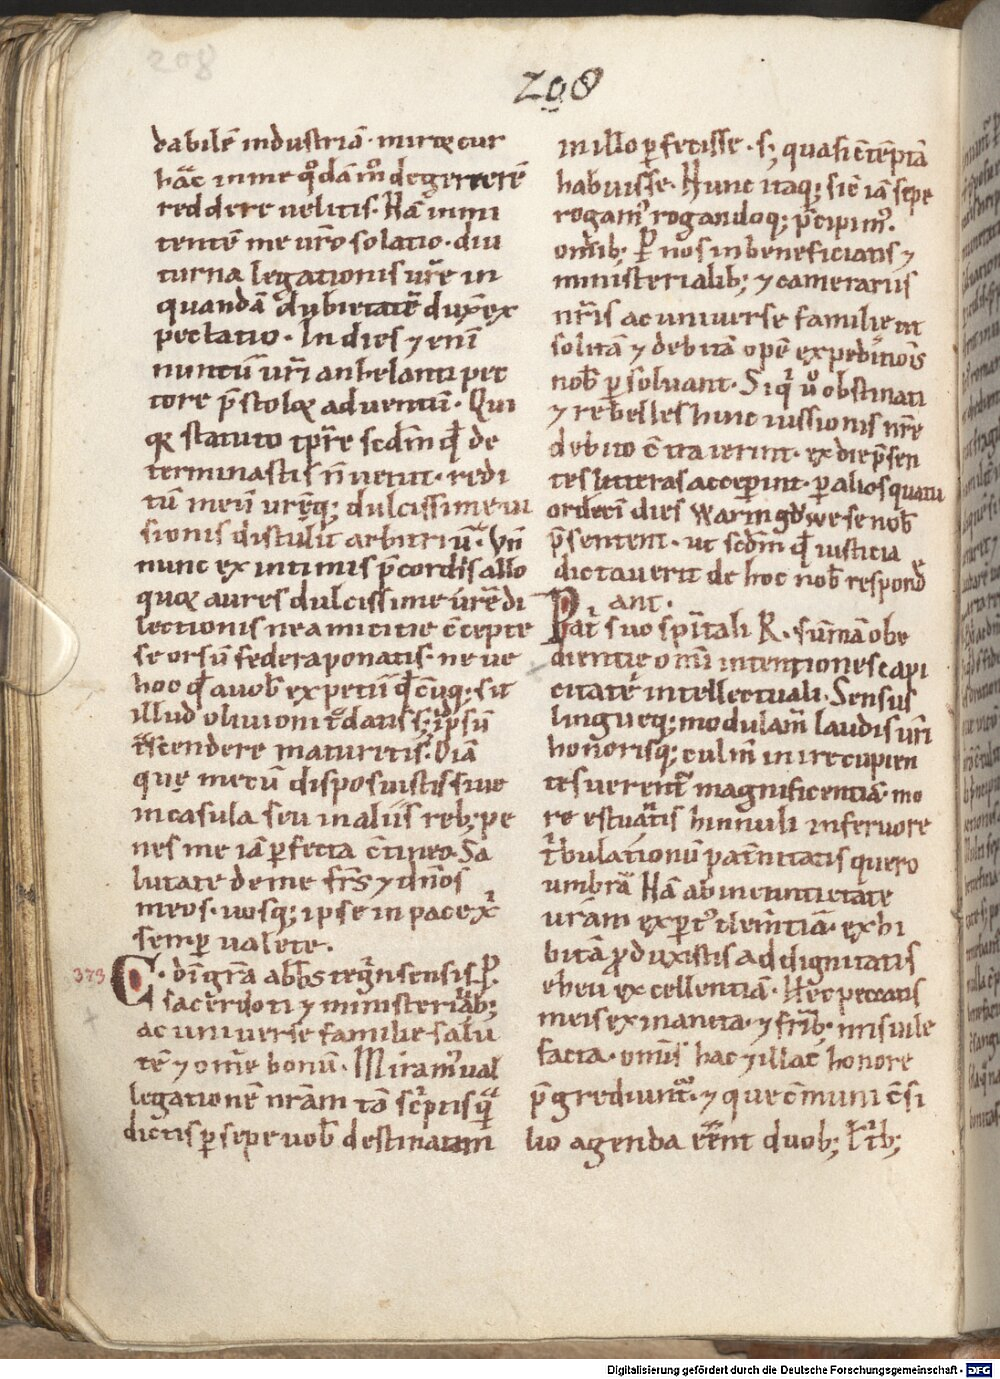 208
208
dabilē industriā. mirẹcur
hāc inme q̊dāmō degerrerē
reddere uelitis. Nā inni
tentē me ur̄o solatio. diu
turna legationis ur̄e in
quandā dubietatē dux̄ ex
pectatio. In dies ⁊ enī
nuntiū ur̄i anhelanti pec
tore p̄stolor aduentū. Qui
qꝛ statuto tp̄re scdm̄ qd̄ de
terminastis n̄ uenit. redi
tū meū ur̄ęq; dulcissime ui
sionis distulit arbitriū. Vn̄
nunc ex intimis p̄cordiis allo
quor aures dulcissime ur̄e di
lectionis ne amicitie c̄cepte
seorsū federa ponatis. ne ue
hoc qd̄ a uob̄ expetii qd̄cūq; sit
illud obliuioni t̄datis s; ip̄sū
t̄scendere maturetis. Viā
quę mecū disposuistis siue
in casula seu in aliis reb; pe
nes me iā perfecta c̄tineo. Sa
lutate de me fr̄s ⁊ dn̄os
meos. uosq; ipse in pace xp̄i
semp ualete.
373
C. dī gr̄a abb̄s tegr̄nsensis P.
sacerdoti ⁊ ministeriab;
ac uniuerse familie salu
tē ⁊ om̄e bonū. Miram̄ ual
legationē nr̄am tā sc̄ptis q̄
dictis p̄sepe uob̄ destinatam
in illo p̄fecisse. s; quasi c̄tēptā
habuisse. Hunc itaq; sic̄ iā sepe
rogam̄ rogandoq; p̄cipim̄.
om̄ib; P nos inbeneficiatis ⁊
ministerialib; ⁊ camerariis
nr̄is ac uniuerse familie ut
solitā ⁊ debitā opē expeditiōis
nob̄ p̄soluant. Siq̄ ů obstinati
⁊ rebelles hunc iussionis nr̄e
debito c̄traierint. ex die p̄sen
tes litteras acceperint. p̄ alios quatu
ordecī dies Waringǒwe se nob̄
p̄sentent. ut scdm̄ qd̄ iusticia
dictauerit de hoc nob̄ respond
eant.
Pat̄ suo sp̄itali R. summā obe
dientie omī intentionescapi
citate intellectuali. Sensus
lingueq; modulam̄ laudis ur̄i
honorisq; culm̄ inire cupien
tes uerent̄ magnificentiā. mo
re estuātis hinnuli in feruore
t̄bulationū pat̄nitatis quero
umbrā. Nā ab ineunte etate
ur̄am expert̄ clem̄tiā. exhi
bitā ꝓduxistis ad dignitatis
eheu excellentiā. Hec peccatis
meis exinanita. ⁊ fr̄ib; in uile
facta. om̄is hac ⁊ illac honore
p̄grediunt̄. ⁊ que c̄muni c̄si
lio agenda eēnt duob; ł t̄b;
Digitalisierung gefördert durch die Deutsche Forschungsgemeinschaft - DFG